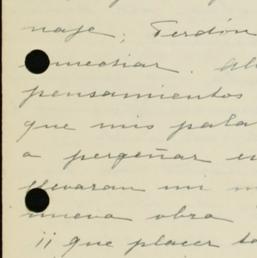 naje; Perdón
pensamientos
que mis pala
a pergeñar
llevaran mi
nueva obra
¡¡ que placer